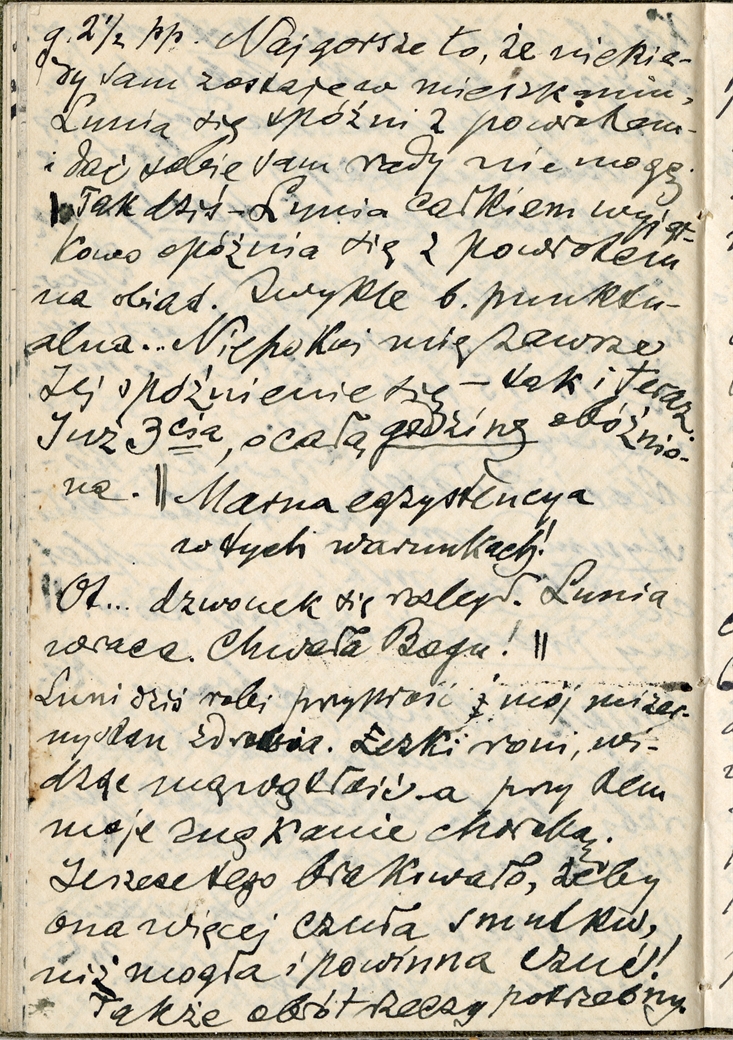 g. 2½ pp. Najgorsze to, że niekie-
dy sam zostaję w mieszkaniu,
Lunia się spóźni z powrotem
i dać sobie sam rady nie mogę.
Tak dziś – Lunia całkiem wyjąt-
kowo opóźnia się z powrotem
na obiad. Zwykle b. punktu-
alna... Niepokoi mię zawsze
Jej spóźnienie się – tak i teraz.
Już 3cia, o całą godzinę opóźnio-
na. || Marna egzystencya
w tych warunkach!
Ot... dzwonek się rozległ. Lunia
wraca. Chwała Bogu! ||
Luni dziś robi przykrość i mój mizer-
ny stan zdrowia. Łezki roni, wi-
dząc mą wątłość a przy tem
moje znękanie chorobą.
Jeszcze tego brakowało, żeby
ona więcej czuła smutku,
niż mogła i powinna czuć!
Także obrót rzeczy potrzebny.